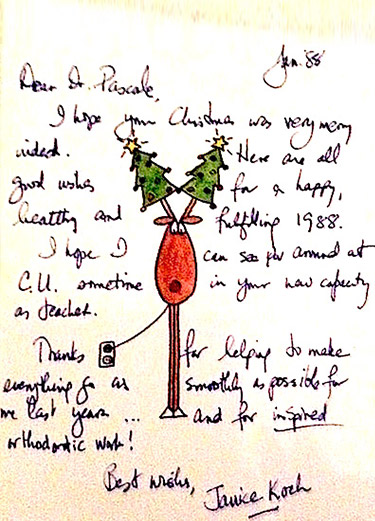 Jan. '88
Dear Dr. Pascale,
I hope your Christmas was very merry
indeed. Here are all
good wishes for a happy,
healthy and fulfilling 1988.
I hope I can see you around at
C.U. sometime in your new capacity
as teacher.
Thanks for helping to make
everything go as smoothly as possible for
me last year ... and for inspired
orthodontic work!
Best wishes,
Janice Koch